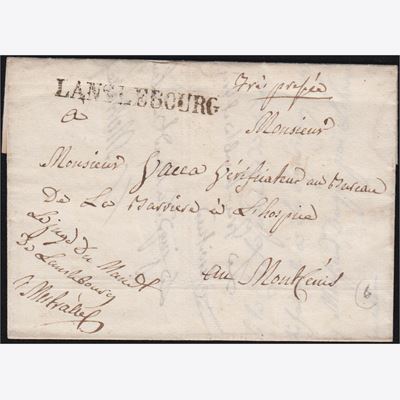 LANSLEBOURG
Très pressée
a
Monsieur
Monsieur Vacca Vérificateur au Bureau
De La Barrière à L'hospice
au Montcenis
Le juge du
De Lanslebourg
6